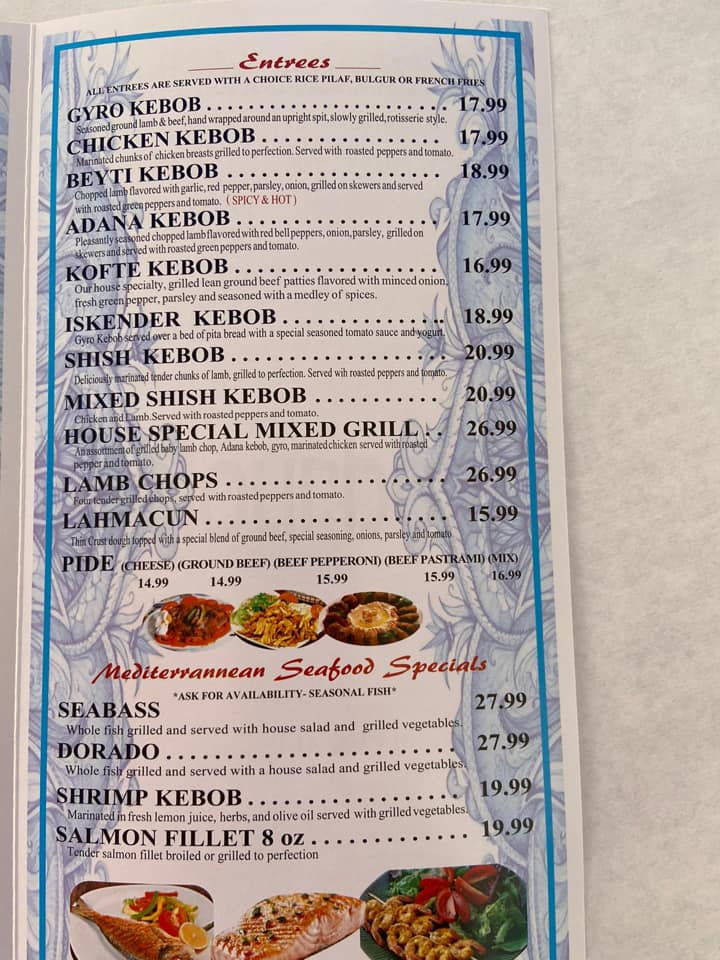 Entrees
ALL ENTREES ARE SERVED WITH A CHOICE RICE PILAF, BULGUR OR FRENCH FRIES
GYRO KEBOB . . . . . . . . . . . . . . . . . . . . . . . . 17.99
Seasoned ground lamb & beef, hand wrapped around an upright spit, slowly grilled, rotisserie style.
CHICKEN KEBOB . . . . . . . . . . . . . . . . . 17.99
Marinated chunks of chicken breasts grilled to perfection. Served with roasted peppers and tomato.
BEYTI KEBOB . . . . . . . . . . . . . . . . . . . . 18.99
Chopped lamb flavored with garlic, red pepper, parsley, onion, grilled on skewers and served
with roasted green peppers and tomato. ( SPICY & HOT )
ADANA KEBOB . . . . . . . . . . . . . . . . . . . 17.99
Pleasantly seasoned chopped lamb flavored with red bell peppers, onion, parsley, grilled on
skewers and served with roasted green peppers and tomato.
KOFTE KEBOB . . . . . . . . . . . . . . . . . . . 16.99
Our house specialty, grilled lean ground beef patties flavored with minced onion,
fresh green pepper, parsley and seasoned with a medley of spices.
ISKENDER KEBOB . . . . . . . . . . . . . . . 18.99
Gyro Kebob served over a bed of pita bread with a special seasoned tomato sauce and yogurt.
SHISH KEBOB . . . . . . . . . . . . . . . . . . . . 20.99
Deliciously marinated tender chunks of lamb, grilled to perfection. Served wih roasted peppers and tomato.
MIXED SHISH KEBOB . . . . . . . . . . . . 20.99
Chicken and Lamb. Served with roasted peppers and tomato.
HOUSE SPECIAL MIXED GRILL . . 26.99
An assortment of grilled baby lamb chop, Adana kebob, gyro, marinated chicken served with roasted
pepper and tomato.
LAMB CHOPS . . . . . . . . . . . . . . . . . . . . 26.99
Four tender grilled chops, served with roasted peppers and tomato.
LAHMACUN . . . . . . . . . . . . . . . . . . . . . . 15.99
Thin Crust dough topped with a special blend of ground beef, special seasoning, onions, parsley and tomato
PIDE (CHEESE) (GROUND BEEF) (BEEF PEPPERONI) (BEEF PASTRAMI) (MIX)
14.99 14.99 15.99 15.99 16.99
Mediterrannean Seafood Specials
*ASK FOR AVAILABILITY- SEASONAL FISH*
SEABASS 27.99
Whole fish grilled and served with house salad and grilled vegetables.
DORADO . . . . . . . . . . . . . . . . . . . . . . . . . 27.99
Whole fish grilled and served with a house salad and grilled vegetables.
SHRIMP KEBOB . . . . . . . . . . . . . . . . . . 19.99
Marinated in fresh lemon juice, herbs, and olive oil served with grilled vegetables.
SALMON FILLET 8 oz . . . . . . . . . . . . . 19.99
Tender salmon fillet broiled or grilled to perfection